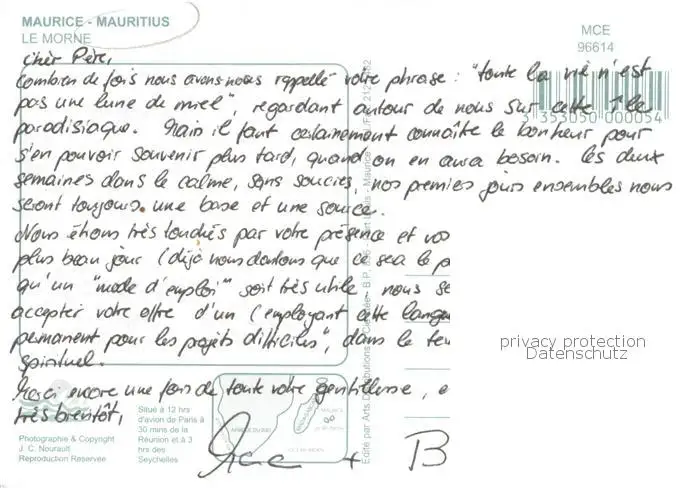 MAURICE - MAURITIUS
LE MORNE
MCE
96614
Chèr Père,
Combien de fois nous avons-nous rappellé votre phrase : "toute la vie n'est
pas une lune de miel", regardant autour de nous sur cette île
paradisiaque. Mais il faut certainement connaître le bonheur pour
s'en pouvoir souvenir plus tard, quand on en aura besoin. Les deux
semaines dans le calme, sans soucies, nos premies jours ensembles nous
seront toujours une base et une source.
Nous étions très touchés par votre présence et vos
plus beau jour (déjà nous doutons que ce sea le p
qu'un "mode d'emploi" soit très utile - nous se
accepter votre offre d'un (employant cette langu
permanent pour les projets difficiles", dans le
spirituel.
Merci encore une fois de toute votre gentillesse, e
très bientôt,
+ B
3 353050 000054
Photographie & Copyright
J. C. Nourault
Reproduction Reservée
Situé à 12 hrs
d'avion de Paris à
30 mins de la
Réunion et à 3
hrs des
Seychelles
AFRIQUE DU SUD
Edité par Arts Distributions
privacy protection
Datenschutz